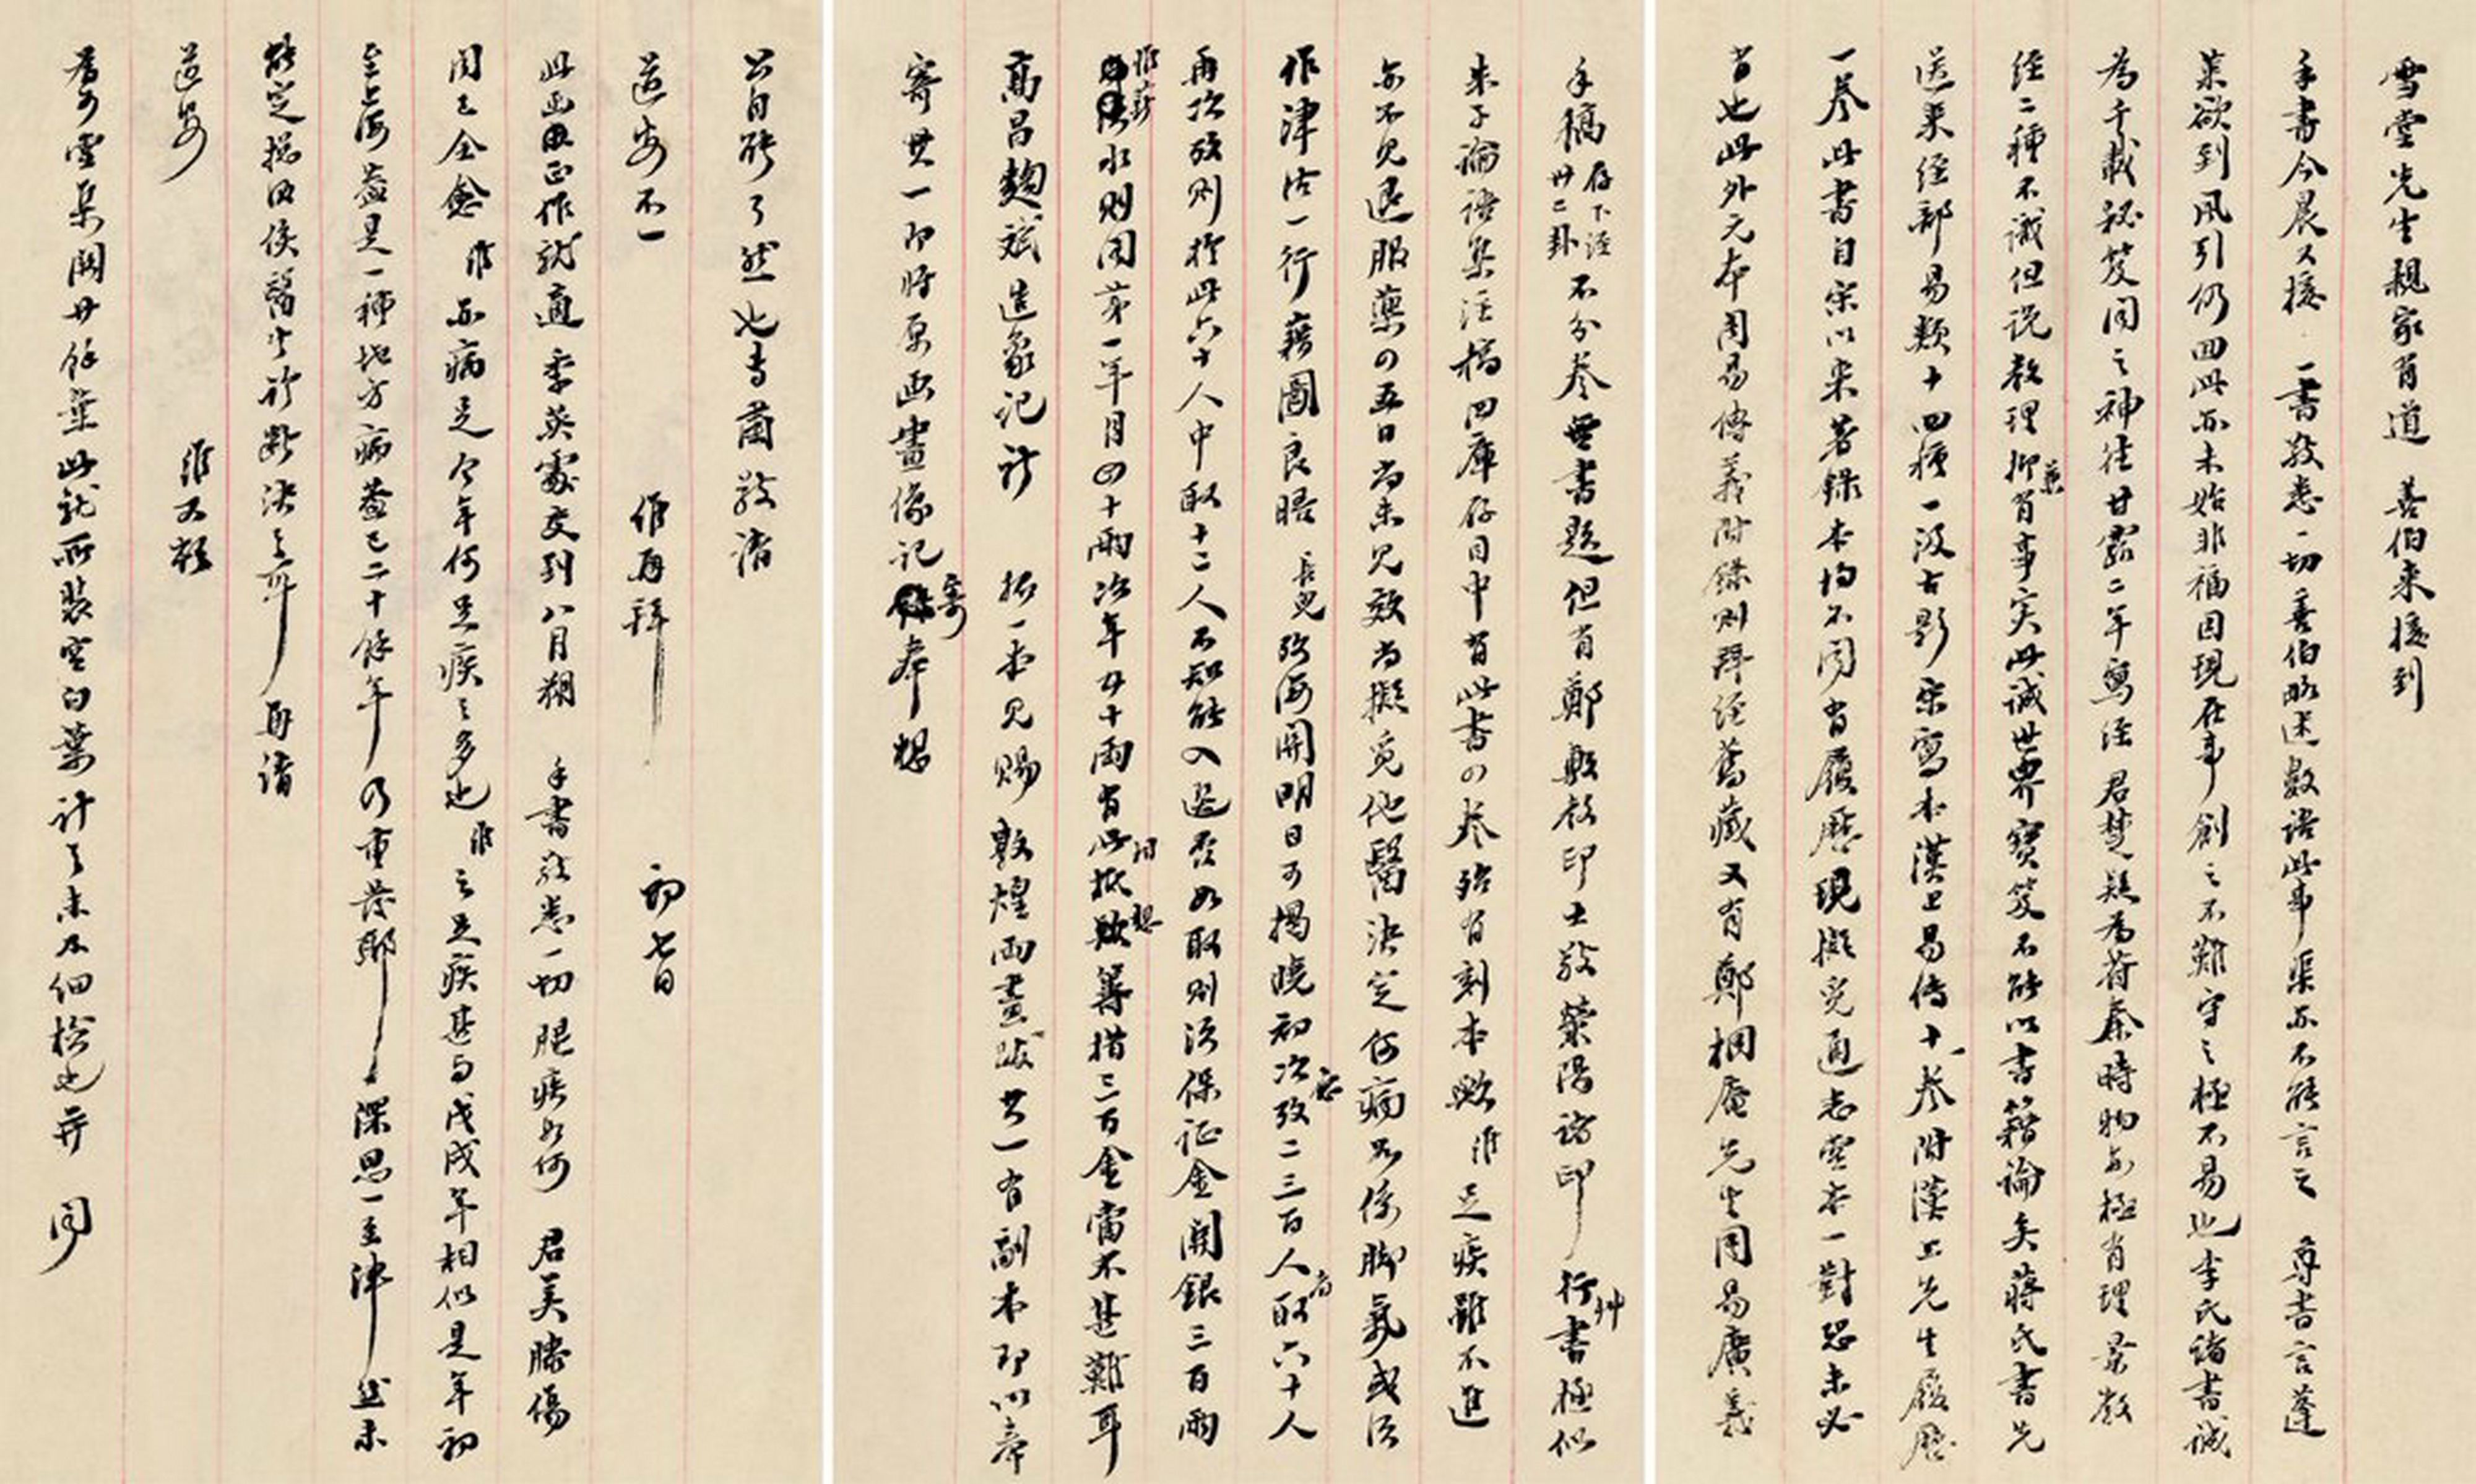 雪堂先生親家有道 善伯来接到
手書今晨又接 一書敬悉一切善伯略述數語此事渠亦不能言之 尊書言蓬
萊欲到風引仍回此亦未始非福因現在事創之不難守之極不易也李氏諸書誠
為千載秘笈聞之神往甘露二年寫經君楚疑為苻秦時物亦極有理景教
經二種不識但說教理抑兼有事实此誠世界寶笈不能以書籍論矣蔣氏書先
送来经部易類十四種一汲古影宋寫本漢上易傳十一卷附漢上先生履歷
一卷此書自宋以来著錄本均不同有履歷現擬覓通志堂本一對恐未必
有也此外元本周易傳義附錄則拜經舊藏又有鄭桐庵先生周易廣義
手稿存下经卅二卦不分卷無書題但有鄭敷教印士敬榮陽諸印行艸書極似
朱子論語集注稿四庫存目中有此書四卷殆有刻本歟維足疾雖不進
亦不見退服藥四五日尚未見效尚擬覓他醫決定何病如係脚氣或須
作津沽一行藉圖良晤 長兒投海關明日可揭曉初次應攷二三百人取者六十人
再次攷則於此六十人中取十二人不知能入选否如取則須保证金關銀三百兩
維薪水則聞第一年月四十兩次年五十兩有此抵款想籌措三百金當不甚難耳
高昌麴斌造象记計 拓一本見賜 敦煌两畫跋共一有副本即以奉
寄其一即將原画畫像记寄奉想
公自能了然也专肅敬请
道安不一 維再拜 初七日
此函甫作就適 季英處交到八月朔 手書敬悉一切 腿疾如何 君美滕傷
闻已全愈維亦病足今年何足疾之多也維之足疾甚与戊戌年相似是年初
至上海盖是一種地方病盖已二十餘年乃重發耶深思一至津然未
能定擬因俟醫生診斷決之耳再请
道安 維又頓
君可雲集闕廿餘葉此就所裝空白葉計之未及细检也并 闻